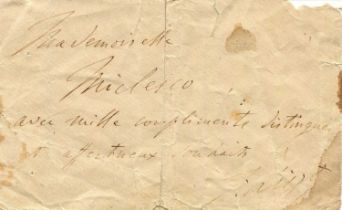 Mademoiselle
Miclesco
avec mille compliments distingués
et affectueux souhaits